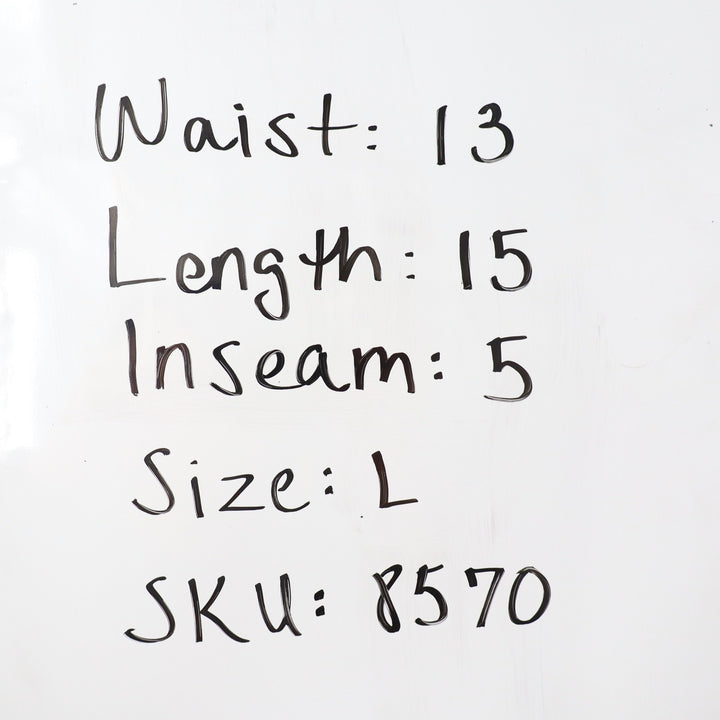 Waist: 13
Length: 15
Inseam: 5
Size: L
SKU: 8570